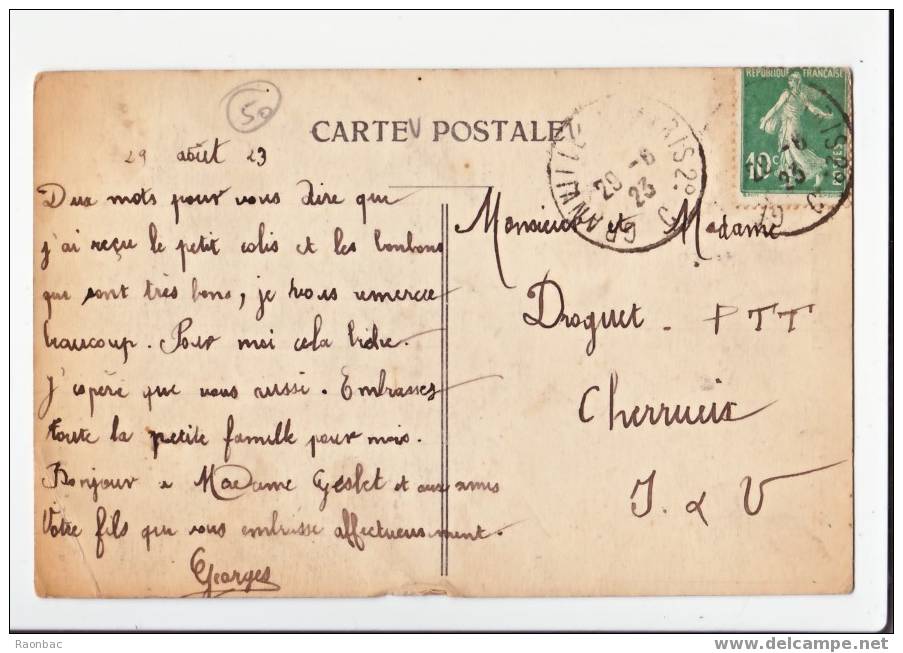 50
CARTE POSTALE
29 août 23
Deux mots pour vous dire que
j'ai reçu le petit colis et les bonbons
que sont très bons, je vous remercie
beaucoup. Pour moi cela
J'espère que vous aussi. Embrasses
toute la petite famille pour moi.
Bonjour a Madame Geslet et aux amis
Votre fils qui vous embrasse affectueusement.
Georges
REPUBLIQUE FRANÇAISE
10c
20 - 8
23
Monsieur et Madame
Droguet - PTT
Cherrueix
I. & V
Raonbac
www.delcampe.net